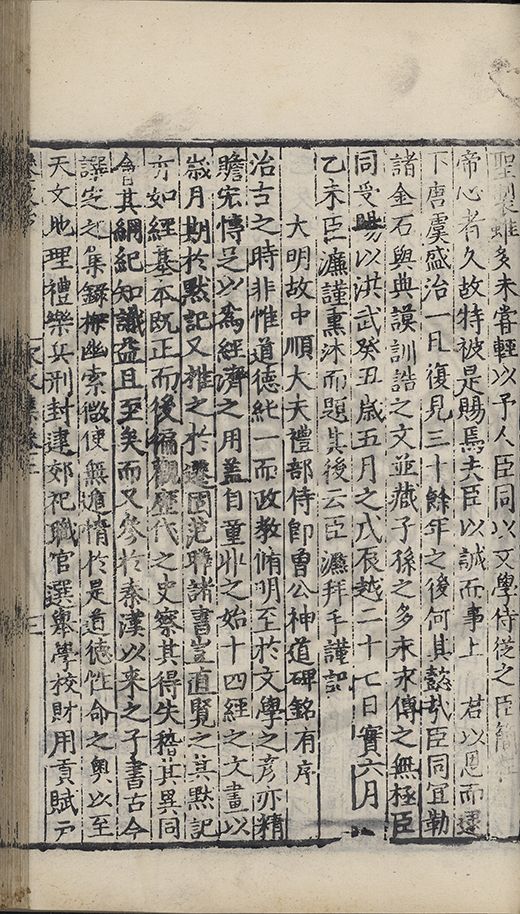 聖製雖多未嘗輕以予人臣同以文學侍從之臣簡在
帝心者久故特被是賜焉夫臣以誠而事上 君以恩而遇
下唐虞盛治一旦復見三十餘年之後何其懿哉臣同宜勒
諸金石與典謨訓誥之文並藏子孫之多末永傳之無極臣
同受賜以洪武癸丑歲五月之戊辰越二十七日實六月
乙未臣濂謹熏沐而題其後云臣濂拜手謹記
大明故中順大夫禮部侍郎曾公神道碑銘有序
治古之時非惟道德純一而政教脩明至於文學之彥亦精
贍宏博足以為經濟之用蓋自童丱之始十四經之文畫以
歲月期於默記又推之於遷固范曄諸書豈直覽之其默記
亦如經基本既正而後徧觀歷代之史察其得失稽其異同
會其綱紀知識益且至矣而又參於秦漢以來之子書古今
譔定之集錄探幽索微使無遁情於是道德性命之奧以至
天文地理禮樂兵刑封建郊祀職官選舉學校財用貢賦戶